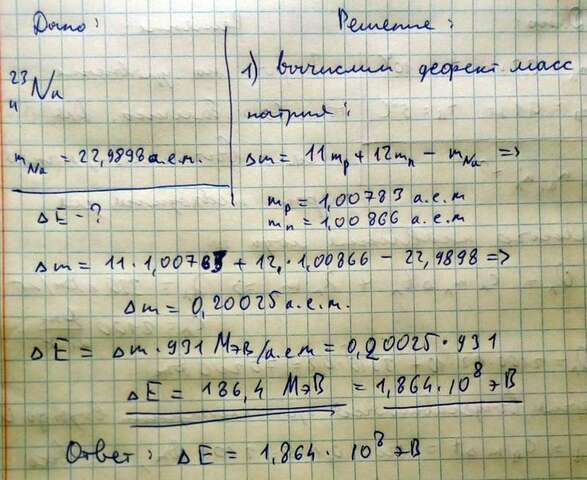 Дано:
Решение:
23
11 Na
m Na = 22,9898 а.е.м.
ΔE - ?
1) Вычислим дефект масс
натрия:
Δm = 11mp + 12mn - mNa =>
mp = 1,00783 а.е.м
mn = 1,00866 а.е.м
Δm = 11·1,00783 + 12·1,00866 - 22,9898 =>
Δm = 0,20025 а.е.м.
ΔE = Δm·931 МэВ/а.е.м = 0,20025·931
ΔE = 186,4 МэВ = 1,864·10⁸ эВ
Ответ: ΔE = 1,864·10⁸ эВ